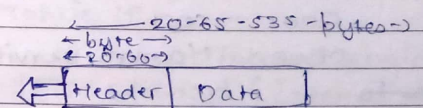 20-65-535-bytes
byte
20-60
Header Data